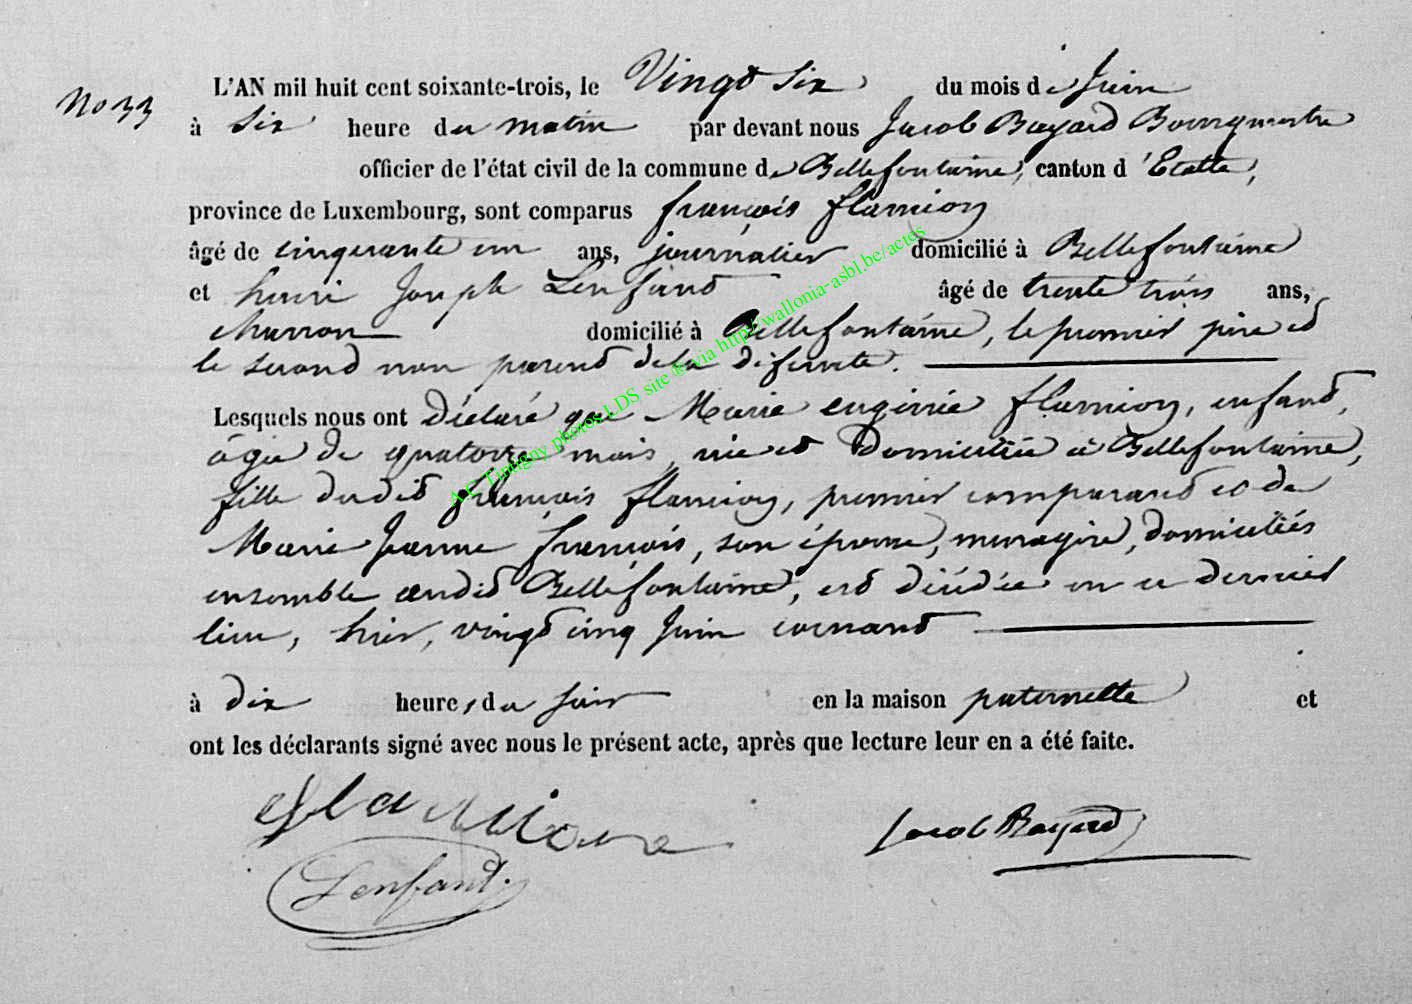 L'AN mil huit cent soixante-trois, le Vingt six du mois de Juin
No 33
à six heure du matin par devant nous Jacob Bayard Bourgmestre
officier de l'état civil de la commune de Bellefontaine, canton d'Etalle,
province de Luxembourg, sont comparus françois flamion
âgé de cinquante un ans, journalier domicilié à Bellefontaine
et henri Joseph Lenfant âgé de trente trois ans,
charron domicilié à Bellefontaine, le premier père et
le second non parent de la défunte.
Lesquels nous ont Déclaré que Marie eugénie flamion, enfant,
âgée de quatorze mois, née et Domiciliée à Bellefontaine,
fille dudit françois flamion, premier comparant et de
Marie Jeanne françois, son épouse, menagère, domiciliés
ensemble audit Bellefontaine, est décédée en ce dernier
lieu, hier, vingt cinq Juin courant
à dix heures du soir en la maison paternelle et
ont les déclarants signé avec nous le présent acte, après que lecture leur en a été faite.
flamion Jacob Bayard
Lenfant.
A.E. Tintigny photos LDS site ® via http://wallonia-asbl.be/actes